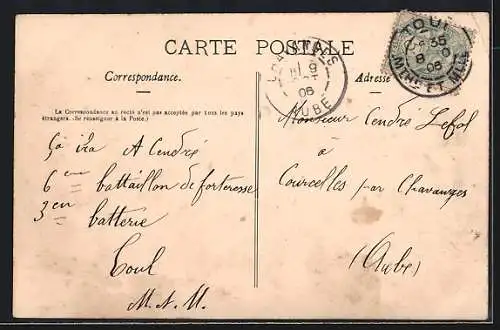 CARTE POSTALE
Correspondance.
Adresse
La Correspondance au recto n'est pas acceptée par tous les pays
étrangers. (Se renseigner à la Poste.)
TOUL
8
06
MTHE ET MLLE
9
06
AUBE
Ça ira A Cendré
6 eme battaillon de forteresse
3 em batterie
Toul
M. & M.
Monsieur Cendre Lefol
a
Courcelles par Chavanges
(Aube)